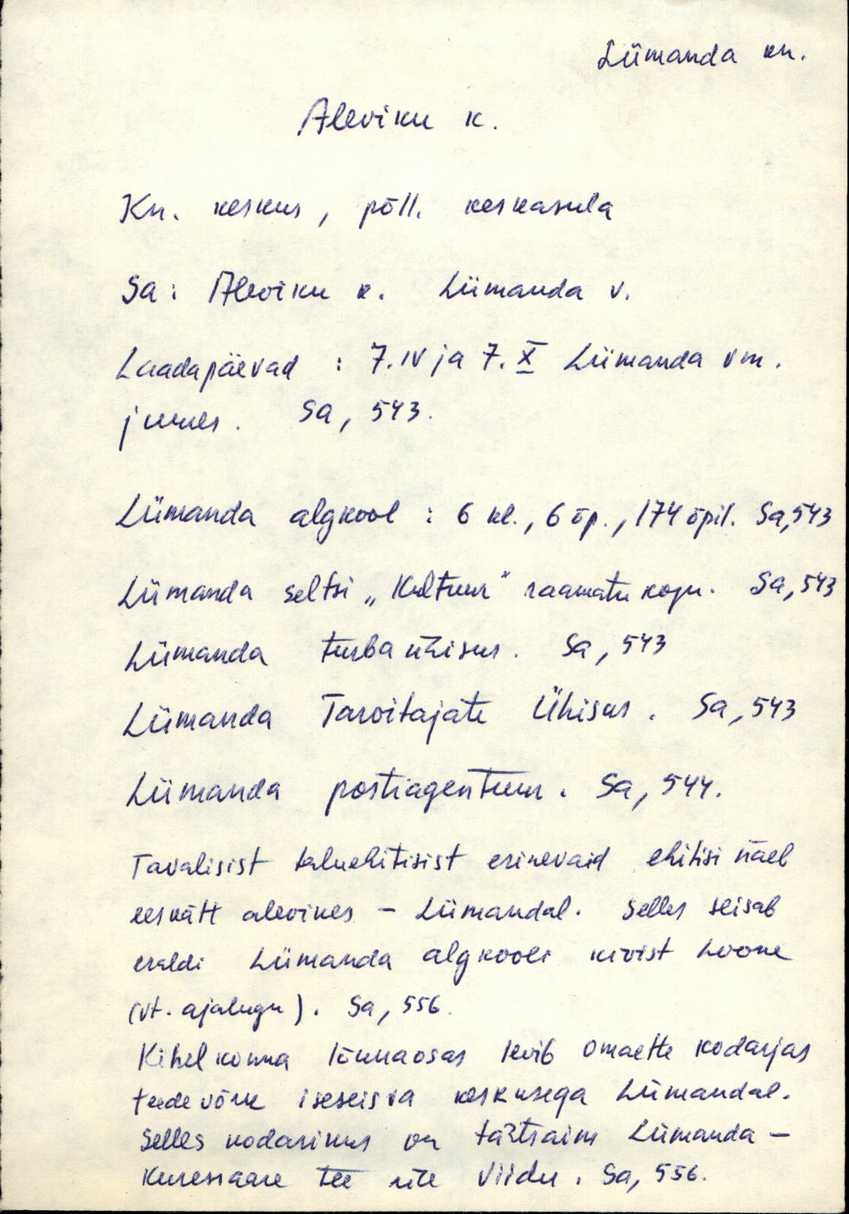 Lümanda kn.
Aleviku k.
Kn. keskus, põll. keskasula
Sa: Aleviku k. Lümanda v.
Laadapäevad : 7. IV ja 7. X Lümanda vm.
juures. Sa, 543.
Lümanda algkool : 6 kl., 6 õp., 174 õpil. Sa, 543
Lümanda seltsi „Kultuur" raamatukogu. Sa, 543
Lümanda turbaühisus. Sa, 543
Lümanda Tarvitajate Ühisus. Sa, 543
Lümanda postiagentuur. Sa, 544.
Tavalisist taluehitisist erinevaid ehitisi näeb
eeskätt alevikes – Lümandal. Selles seisab
eraldi Lümanda algkooli kivist hoone
(vt. ajalugu). Sa, 556.
Kihelkonna lõunaosas levib omaette kodarjas
teedevõrk iseseisva keskusega Lümandal.
Selles kodarikus on tähtsaim Lümanda –
Kuressaare tee üle Viidu. Sa, 556.